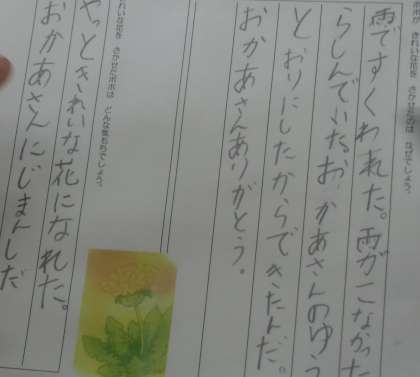 ポポが きれいな花を さかせたのは なぜでしょう。
雨ですくわれた。雨がこなかった
らしんでいたお、かあさんのゆう
とおりにしたからできたんだ。
おかあさんありがとう。
きれいな花を さかせたポポは どんな気もちでしょう。
やっときれいな花になれた。
おかあさんにじまんしだ